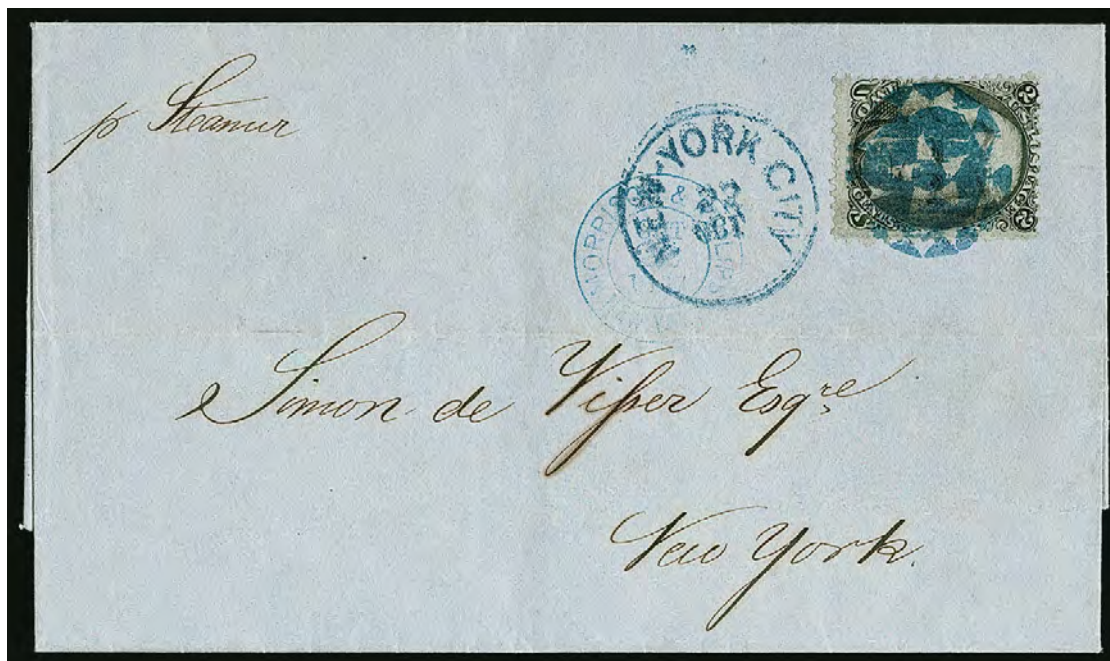 p Steamer
NEW-YORK CITY
OCT
MORRISON &
Simon de Visser Esqre
New York.